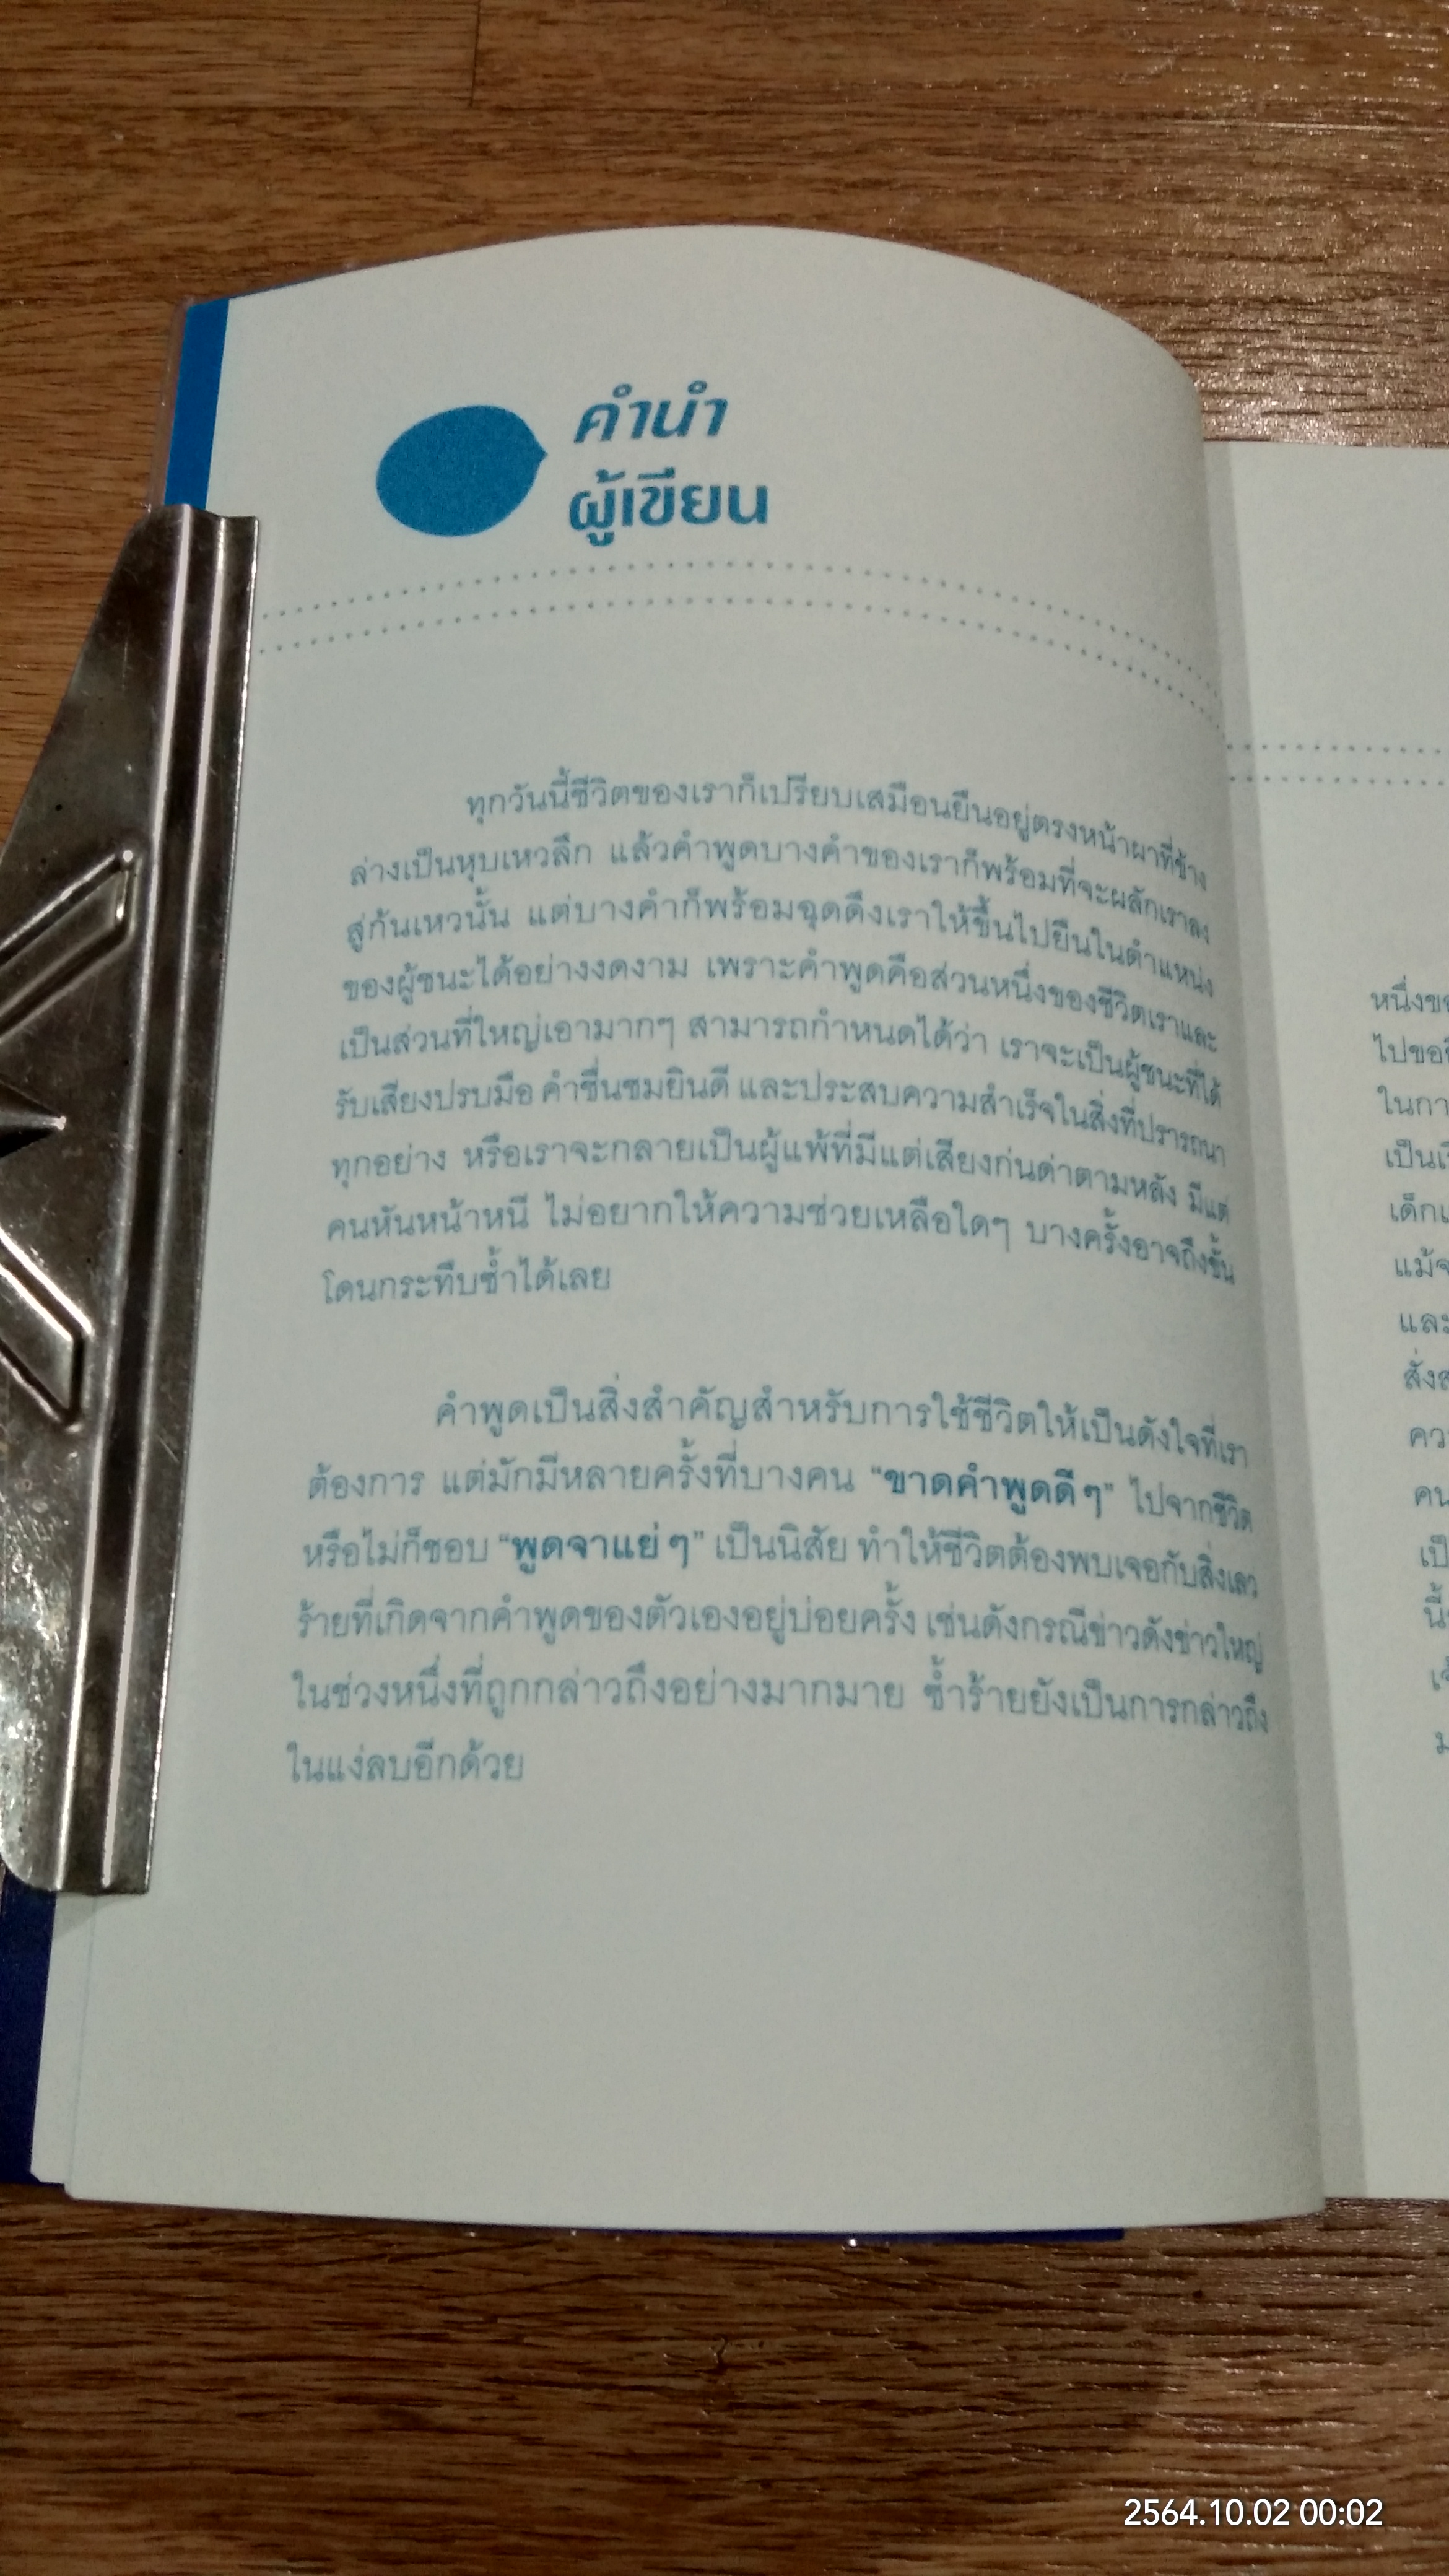 คำนำ
ผู้เขียน
ทุกวันนี้ชีวิตของเราก็เปรียบเสมือนยืนอยู่ตรงหน้าผาที่ข้าง
ล่างเป็นหุบเหวลึก แล้วคำพูดบางคำของเราก็พร้อมที่จะผลักเราลง
สู่ก้นเหวนั้น แต่บางคำก็พร้อมฉุดดึงเราให้ขึ้นไปยืนในตำแหน่ง
ของผู้ชนะได้อย่างงดงาม เพราะคำพูดคือส่วนหนึ่งของชีวิตเราและ
เป็นส่วนที่ใหญ่เอามากๆ สามารถกำหนดได้ว่า เราจะเป็นผู้ชนะที่ได้
รับเสียงปรบมือ คำชื่นชมยินดี และประสบความสำเร็จในสิ่งที่ปรารถนา
ทุกอย่าง หรือเราจะกลายเป็นผู้แพ้ที่มีแต่เสียงก่นด่าตามหลัง มีแต่
คนหันหน้าหนี ไม่อยากให้ความช่วยเหลือใดๆ บางครั้งอาจถึงขั้น
โดนกระทืบซ้ำได้เลย
คำพูดเป็นสิ่งสำคัญสำหรับการใช้ชีวิตให้เป็นดังใจที่เรา
ต้องการ แต่มักมีหลายครั้งที่บางคน “ขาดคำพูดดีๆ” ไปจากชีวิต
หรือไม่ก็ชอบ “พูดจาแย่ๆ” เป็นนิสัย ทำให้ชีวิตต้องพบเจอกับสิ่งเลว
ร้ายที่เกิดจากคำพูดของตัวเองอยู่บ่อยครั้ง เช่นดังกรณีข่าวดังข่าวใหญ่
ในช่วงหนึ่งที่ถูกกล่าวถึงอย่างมากมาย ซ้ำร้ายยังเป็นการกล่าวถึง
ในแง่ลบอีกด้วย
ในกา
แม้จ
และ
2564.10.02 00:02